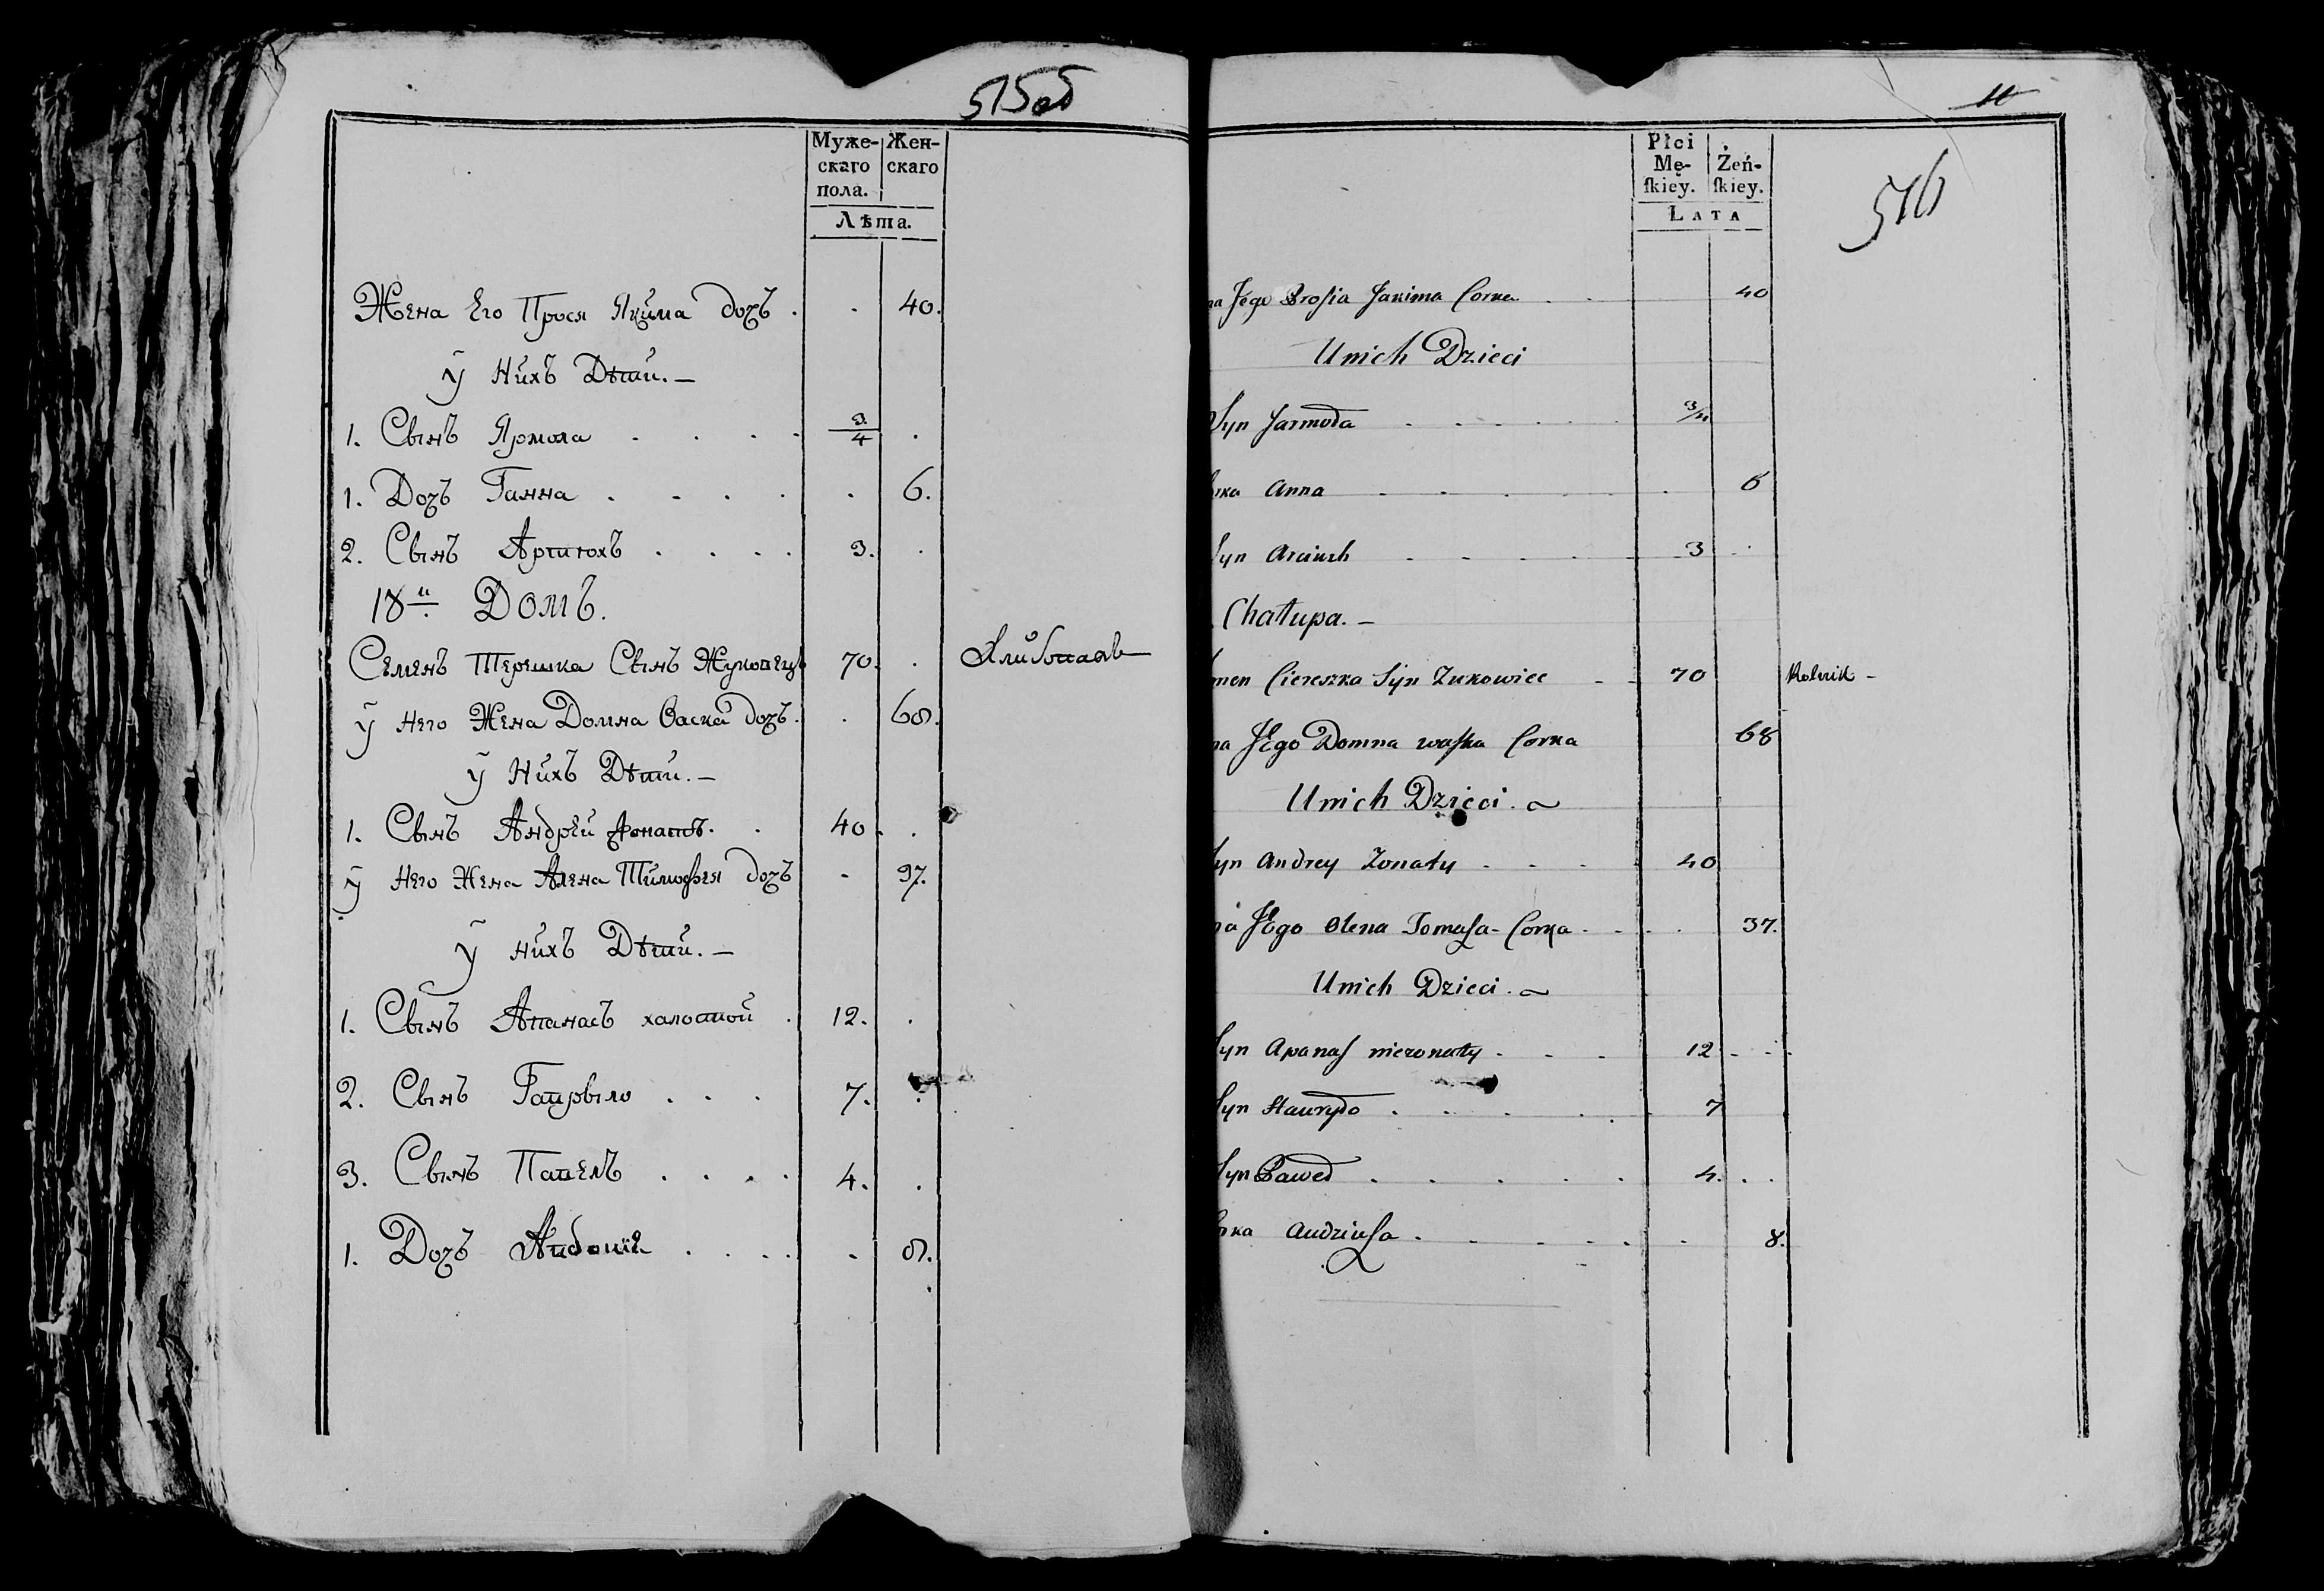 515об
Муже- Жен-
скаго скаго
пола.
Лѣта.
Жена Его Прося Якима дочь . . 40.
у Нихъ Дѣти. —
1. Сынъ Ярмола . . . . 3/4 .
1. Дочь Ганна . . . . . 6.
2. Сынъ Артюхъ . . . . 3. .
18й Домъ.
Семенъ Терешка Сынъ Жуковецъ 70. .
у Него Жена Домна Васка дочь . . 68.
у Нихъ Дѣти. —
1. Сынъ Андрей жонатъ. . 40. .
у Него Жена Алена Тимофея дочь - 37.
у нихъ Дѣти. —
1. Сынъ Апанасъ халостой . 12. .
2. Сынъ Гаврыло . . . 7. .
3. Сынъ Павелъ . . . . 4. .
1. Дочь . . . . . 8.
11
516
Płci
Mę- Żeń-
ſkiey. ſkiey.
LATA
na Jego Prosia Jakima Corka . . 40
Unich Dzieci
Syn Jarmoła . . . . . 3/4
rka Anna . . . . . . 6
Syn Arciuch . . . . . 3 .
Chałupa. —
men Ciereszka Syn Zukowiec - - 70 Rolnik -
na JEgo Domna waſka Corka 68
Unich Dzieci. ~
Syn Andrey Zonaty . . . . 40
na JEgo Olena Tomaſa - Corka . . . 37.
Unich Dzieci. ~
Syn Apanaſ niezonaty . . . 12 . . .
Syn Hauryło . . . . . 7
Syn Paweł . . . . . 4. . .
rka Audziuſa . . . . . . 8.